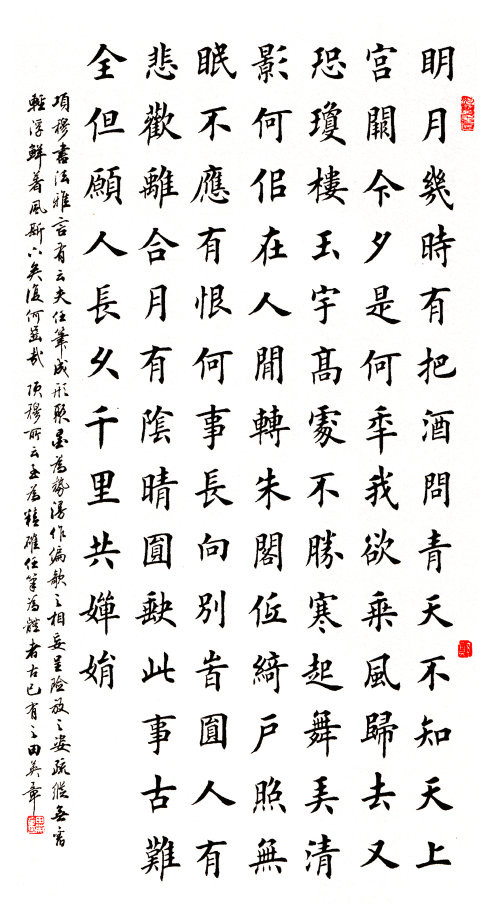 明月幾時有把酒問青天不知天上
宮闕今夕是何秊我欲乘風歸去又
恐瓊樓玉宇高處不勝寒起舞弄清
影何佀在人閒轉朱閣低綺戶照無
眠不應有恨何事長向別峕圓人有
悲歡離合月有陰晴圓缺此事古難
全但願人長久千里共嬋娟
項穆書法雅言有云夫任筆成形聚墨為勢漫作偏欹之相妄呈險放之姿疏縱無
輕浮鮮著風斯下矣復何齒哉 項穆所云至為精確任筆為體者古已有之田英章